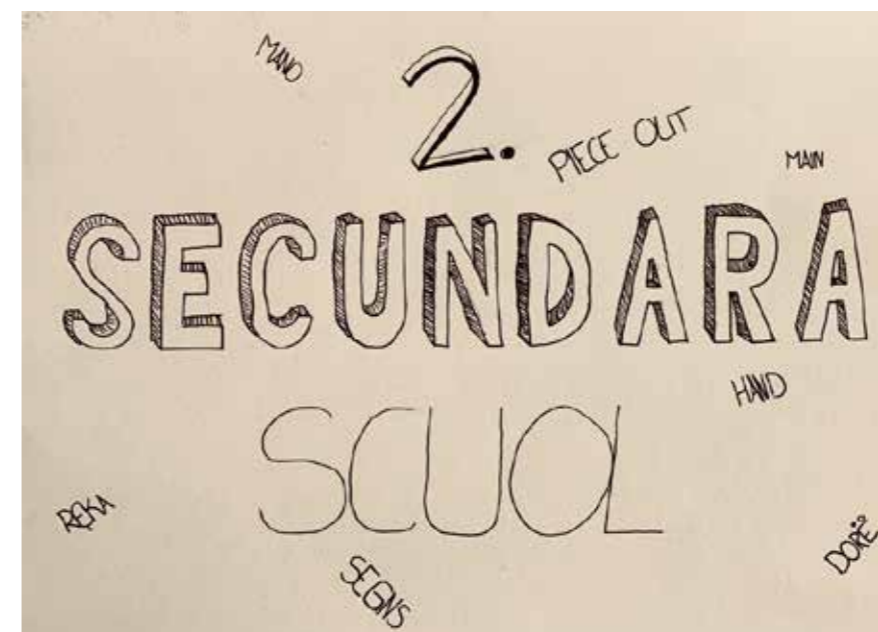 MANO
2.
PIECE OUT
MAIN
SECUNDARA
HAND
SCUOL
REKA
DORË
SEGNS